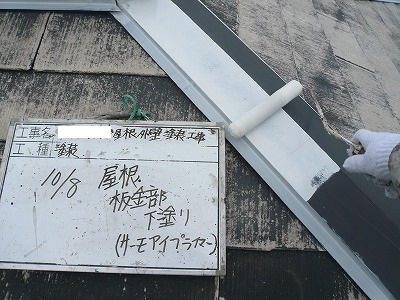 工事名 屋根、外壁塗装工事
工種 塗装
10/8 屋根
板金部
下塗り
(サーモアイプライマー)